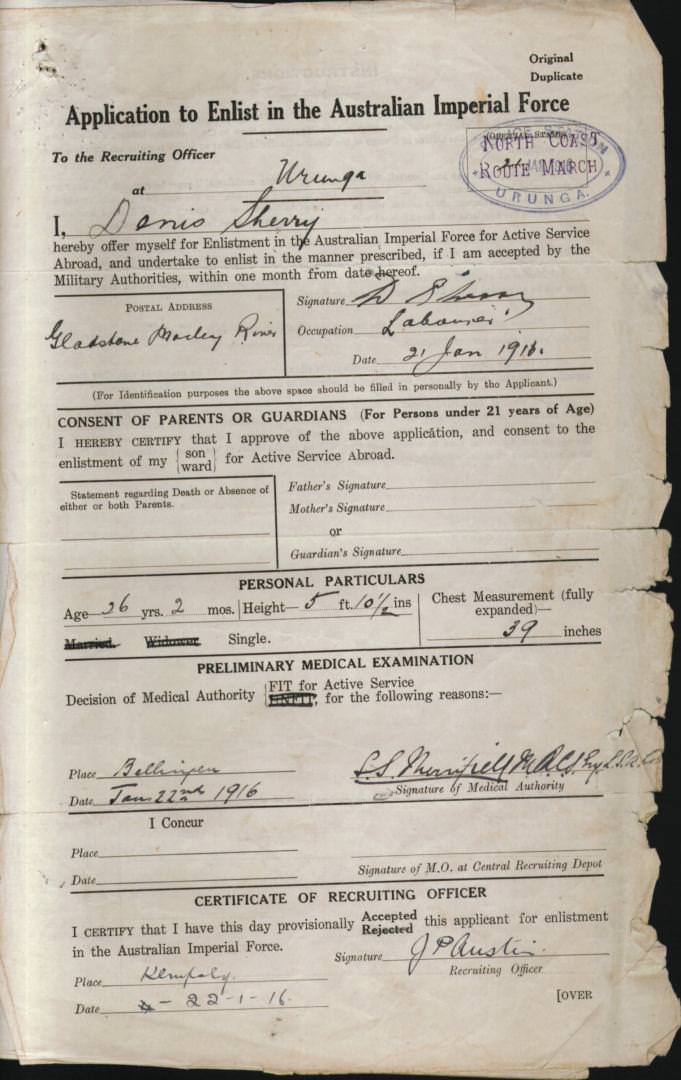 Original
Duplicate
Application to Enlist in the Australian Imperial Force
To the Recruiting Officer
(OFFICIAL STAMP)
NORTH COAST
ROUTE MARCH
URUNGA
at Urunga
I, Denis Sherry
hereby offer myself for Enlistment in the Australian Imperial Force for Active Service
Abroad, and undertake to enlist in the manner prescribed, if I am accepted by the
Military Authorities, within one month from date hereof.
POSTAL ADDRESS
Gladstone River
Signature D Sherry
Occupation Labourer
Date 21 Jan 1916.
(For Identification purposes the above space should be filled in personally by the Applicant.)
CONSENT OF PARENTS OR GUARDIANS (For Persons under 21 years of Age)
I HEREBY CERTIFY that I approve of the above application, and consent to the
enlistment of my {son
ward} for Active Service Abroad.
Statement regarding Death or Absence of
either or both Parents.
Father's Signature
Mother's Signature
or
Guardian's Signature
PERSONAL PARTICULARS
Age 26 yrs. 2 mos. Height—5 ft. 10½ ins
Chest Measurement (fully
expanded)—
39 inches
Married. Widower. Single.
PRELIMINARY MEDICAL EXAMINATION
Decision of Medical Authority {FIT for Active Service
UNFIT, for the following reasons:—
Place Bellingen
Date Jan 22nd 1916
Signature of Medical Authority
I Concur
Place
Date
Signature of M.O. at Central Recruiting Depot
CERTIFICATE OF RECRUITING OFFICER
I CERTIFY that I have this day provisionally Accepted
Rejected this applicant for enlistment
in the Australian Imperial Force.
Signature J P Austin
Recruiting Officer
Place Kempsey
Date 22-1-16.
[OVER